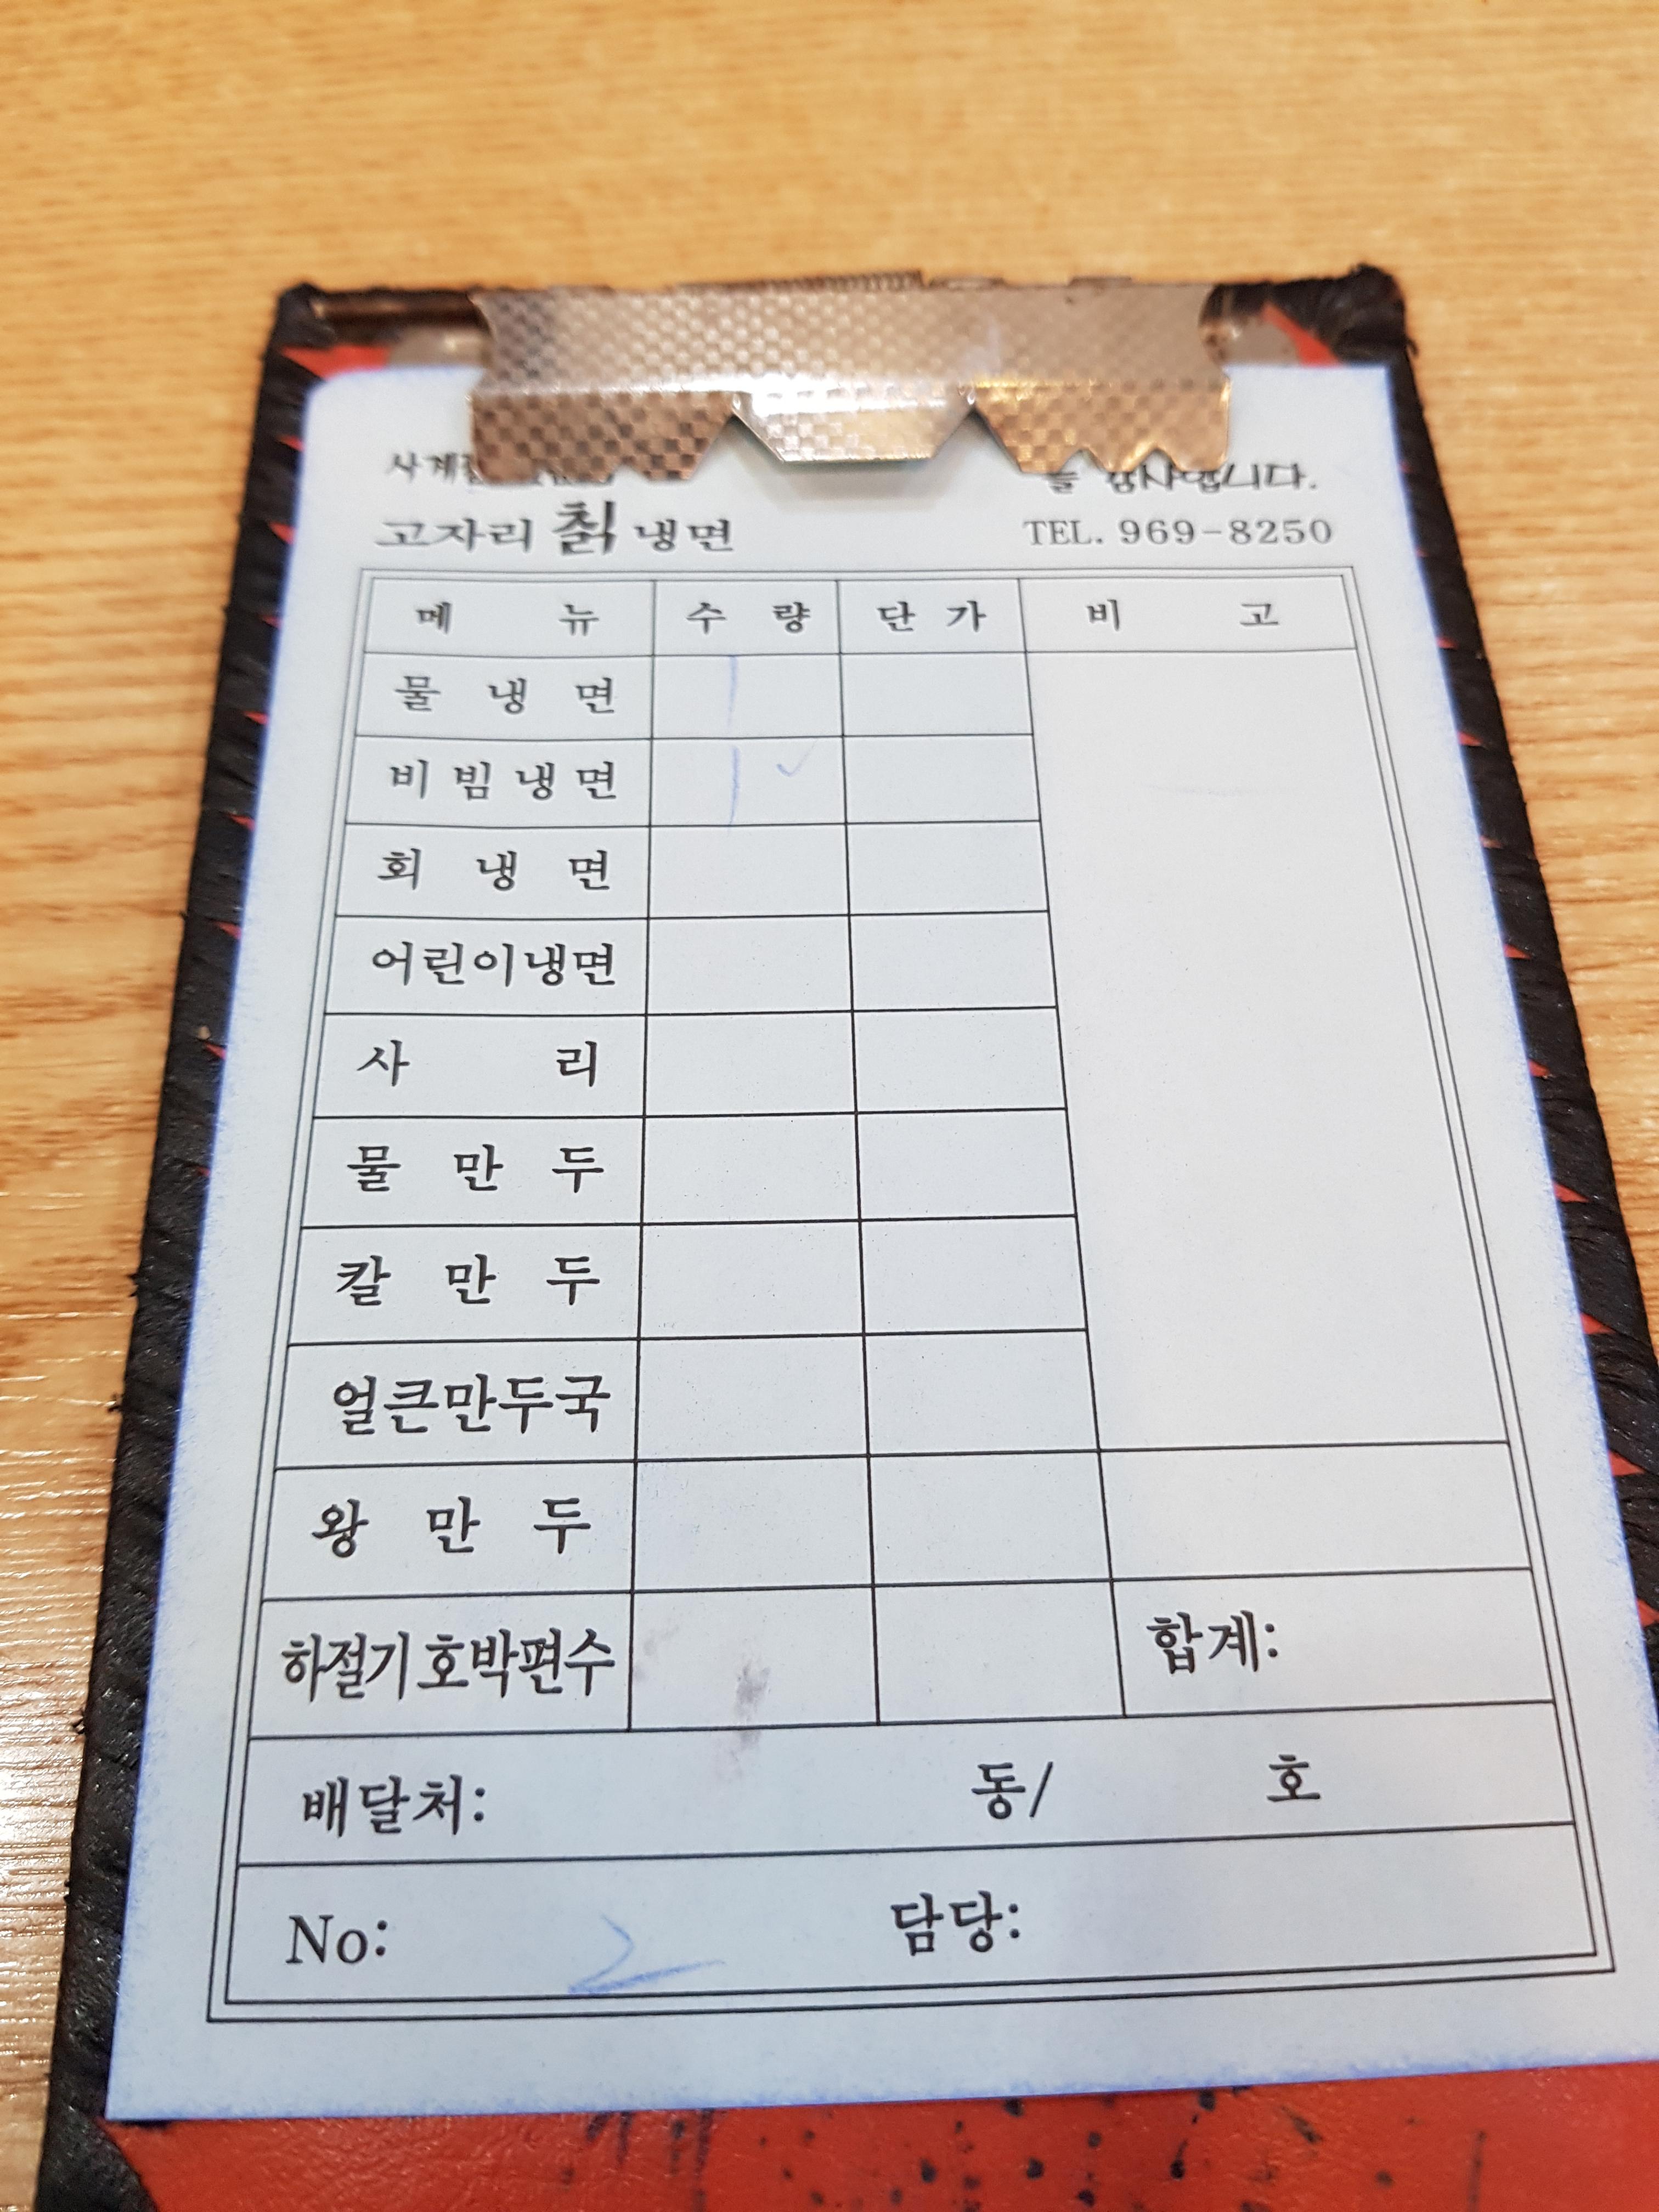 고자리 칡 냉면 TEL. 969-8250
메 뉴 수 량 단 가 비 고
물 냉 면 1
비 빔 냉 면 1 ✓
회 냉 면
어린이냉면
사 리
물 만 두
칼 만 두
얼큰만두국
왕 만 두
하절기 호박편수 합계:
배달처: 동/ 호
No: 2 담당: